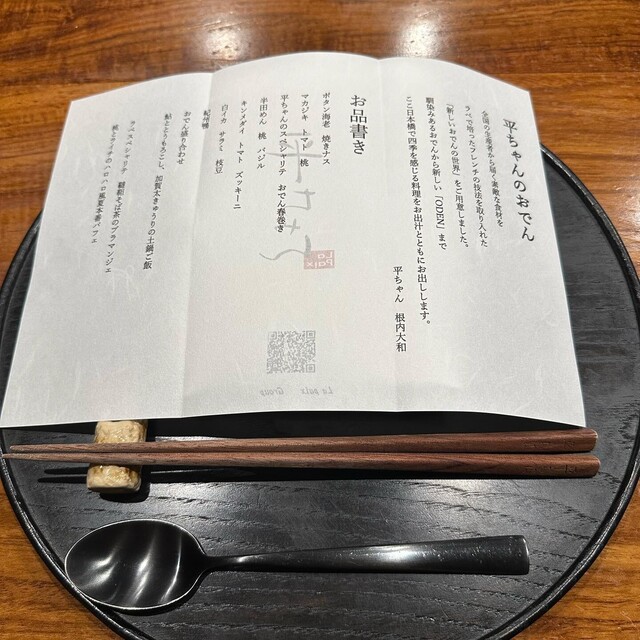 平ちゃんのおでん
全国の生産者から届く素敵な食材を
ラペで培ったフレンチの技法を取り入れた
「新しいおでんの世界」をご用意しました。
馴染みあるおでんから新しい「ODEN」まで
ここ日本橋で四季を感じる料理をお出汁とともにお出しします。
平ちゃん 根内大和
お品書き
ボタン海老 焼きナス
マカジキ トマト 桃
平ちゃんのスペシャリテ おでん春巻き
半田めん 桃 バジル
キンメダイ トマト ズッキーニ
白イカ サラミ 枝豆
おでん盛り合わせ
鮎ととうもろこし、加賀太きゅうりの土鍋ご飯
ラペスペシャリテ 韃靼そば茶のブラマンジェ
桃とライチのハロハロ風夏本番パフェ
平ちゃん
La Paix
La paix Group